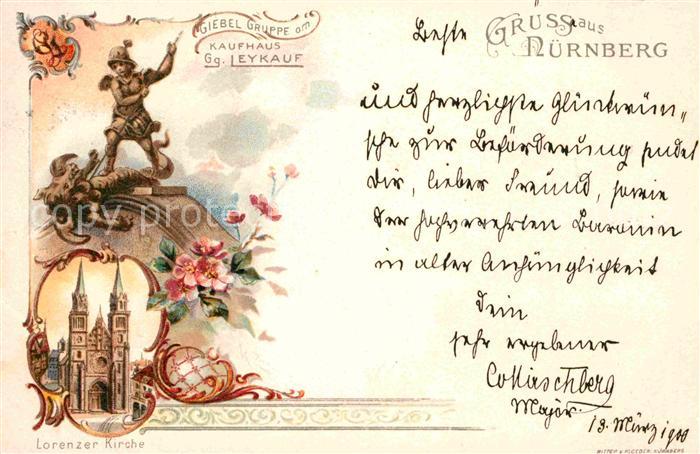 GIEBEL GRUPPE am
KAUFHAUS
Gg. LEYKAUF
GRUSS aus
NÜRNBERG
Beste
und herzlichste Glückwün„
sche zur Beförderung sendet
Dir, lieber Freund, sowie
der hochverehrten Baronin
in alter Anhänglichkeit
Dein
sehr ergebener
Major.
13. März 1900
Lorenzer Kirche
copy prote